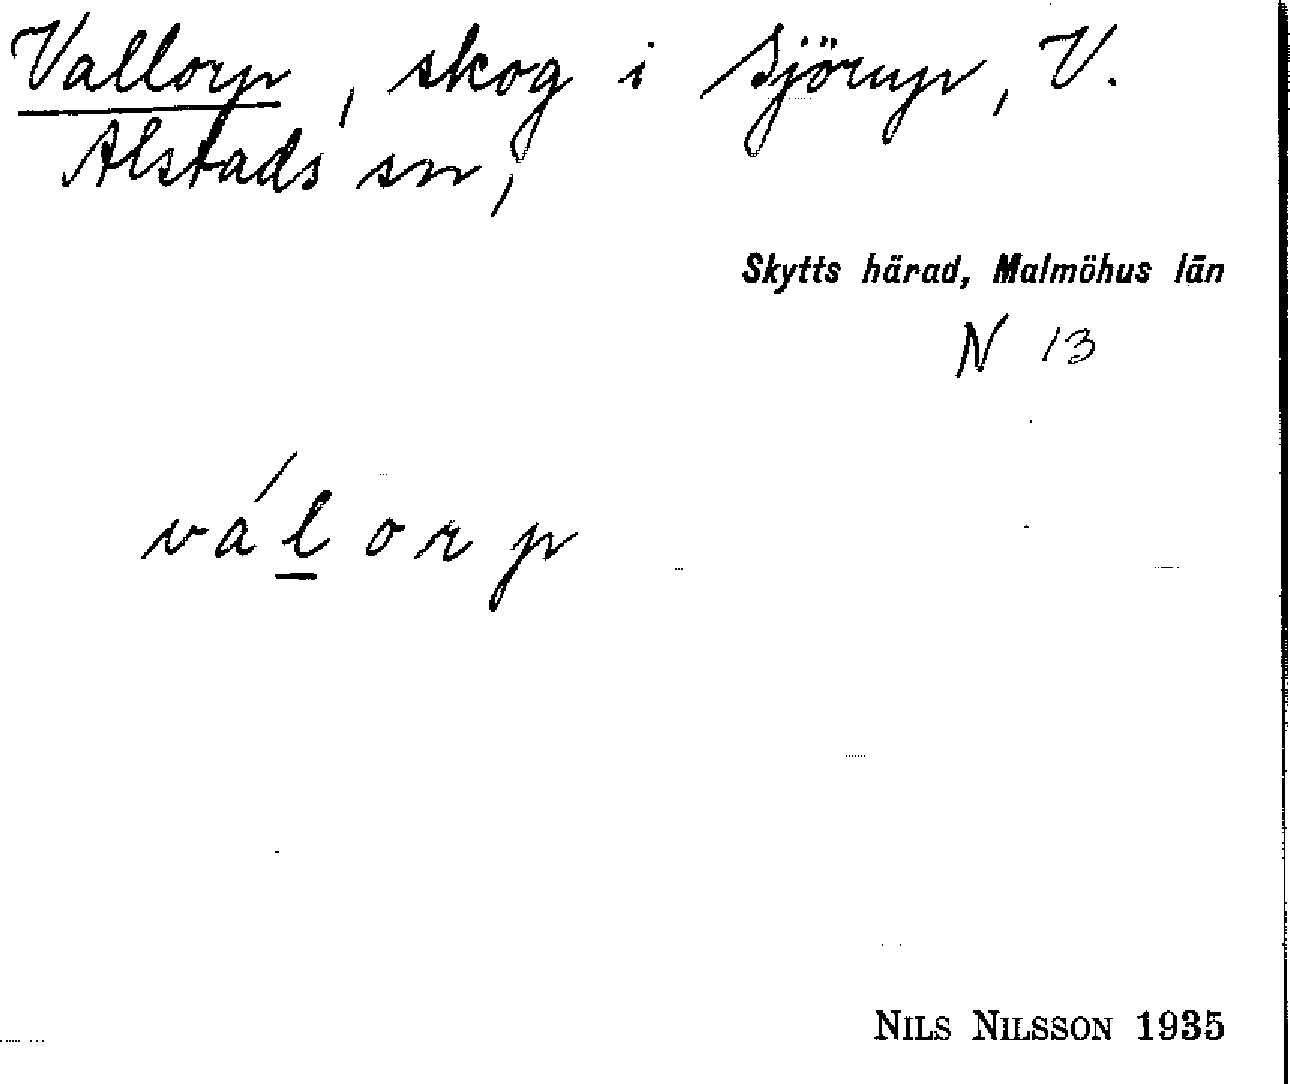 Vallorp, skog i Sjörup, V.
Alstads sn,
Skytts härad, Malmöhus län
N 13
vál orp
NILS NILSSON 1935